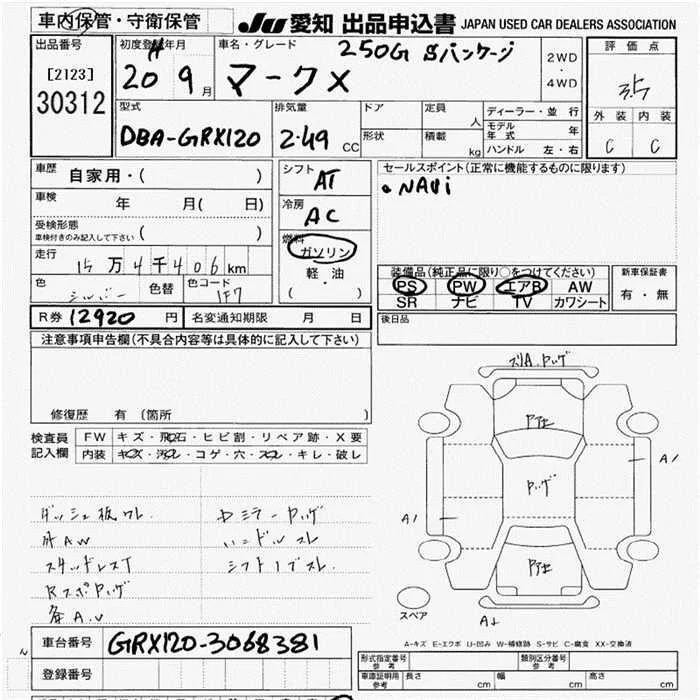 車内保管・守衛保管
JU 愛知 出品申込書 JAPAN USED CAR DEALERS ASSOCIATION
出品番号
[2123]
30312
初度登録年月
H
20 9月
車名・グレード
250G Sパッケージ
マークX
2WD
・
4WD
評価点
3.5
外装 内装
C C
型式
DBA-GRX120
排気量
2.49 CC
ドア
形状
定員
人
積載
kg
ディーラー・並行
モデル年式 年
ハンドル 左・右
車歴
自家用・( )
車検
年 月( 日)
受検形態
車検付きのみ記入して下さい ( )
走行
15万4千406km
色
シルバー
色替
色コード
1F7
シフト
AT
冷房
AC
燃料
ガソリン
軽・油
( )
セールスポイント(正常に機能するものに限ります)
・NAVi
装備品(純正品に限り○をつけてください)
PS PW エアB AW
SR ナビ TV カワシート
新車保証書
有・無
R券 12920 円
名変通知期限 月 日
後日品
注意事項申告欄(不具合内容等は具体的に記入して下さい)
修復歴 有 (箇所 )
検査員
記入欄
FW キズ・飛石・ヒビ割・リペア跡・X要
内装 キズ・汚れ・コゲ・穴・スレ・キレ・破レ
ダッシュ板ワレ
外AW
スタッドレスT
A1
A1
スペア
A-キズ E-エクボ U-凹み W-補修跡 S-サビ C-腐食 XX-交換済
車台番号
GRX120-3068381
登録番号
形式指定番号
参考
類別区分番号
参考
車庫証明用
参考
長さ cm
幅 cm
高さ cm